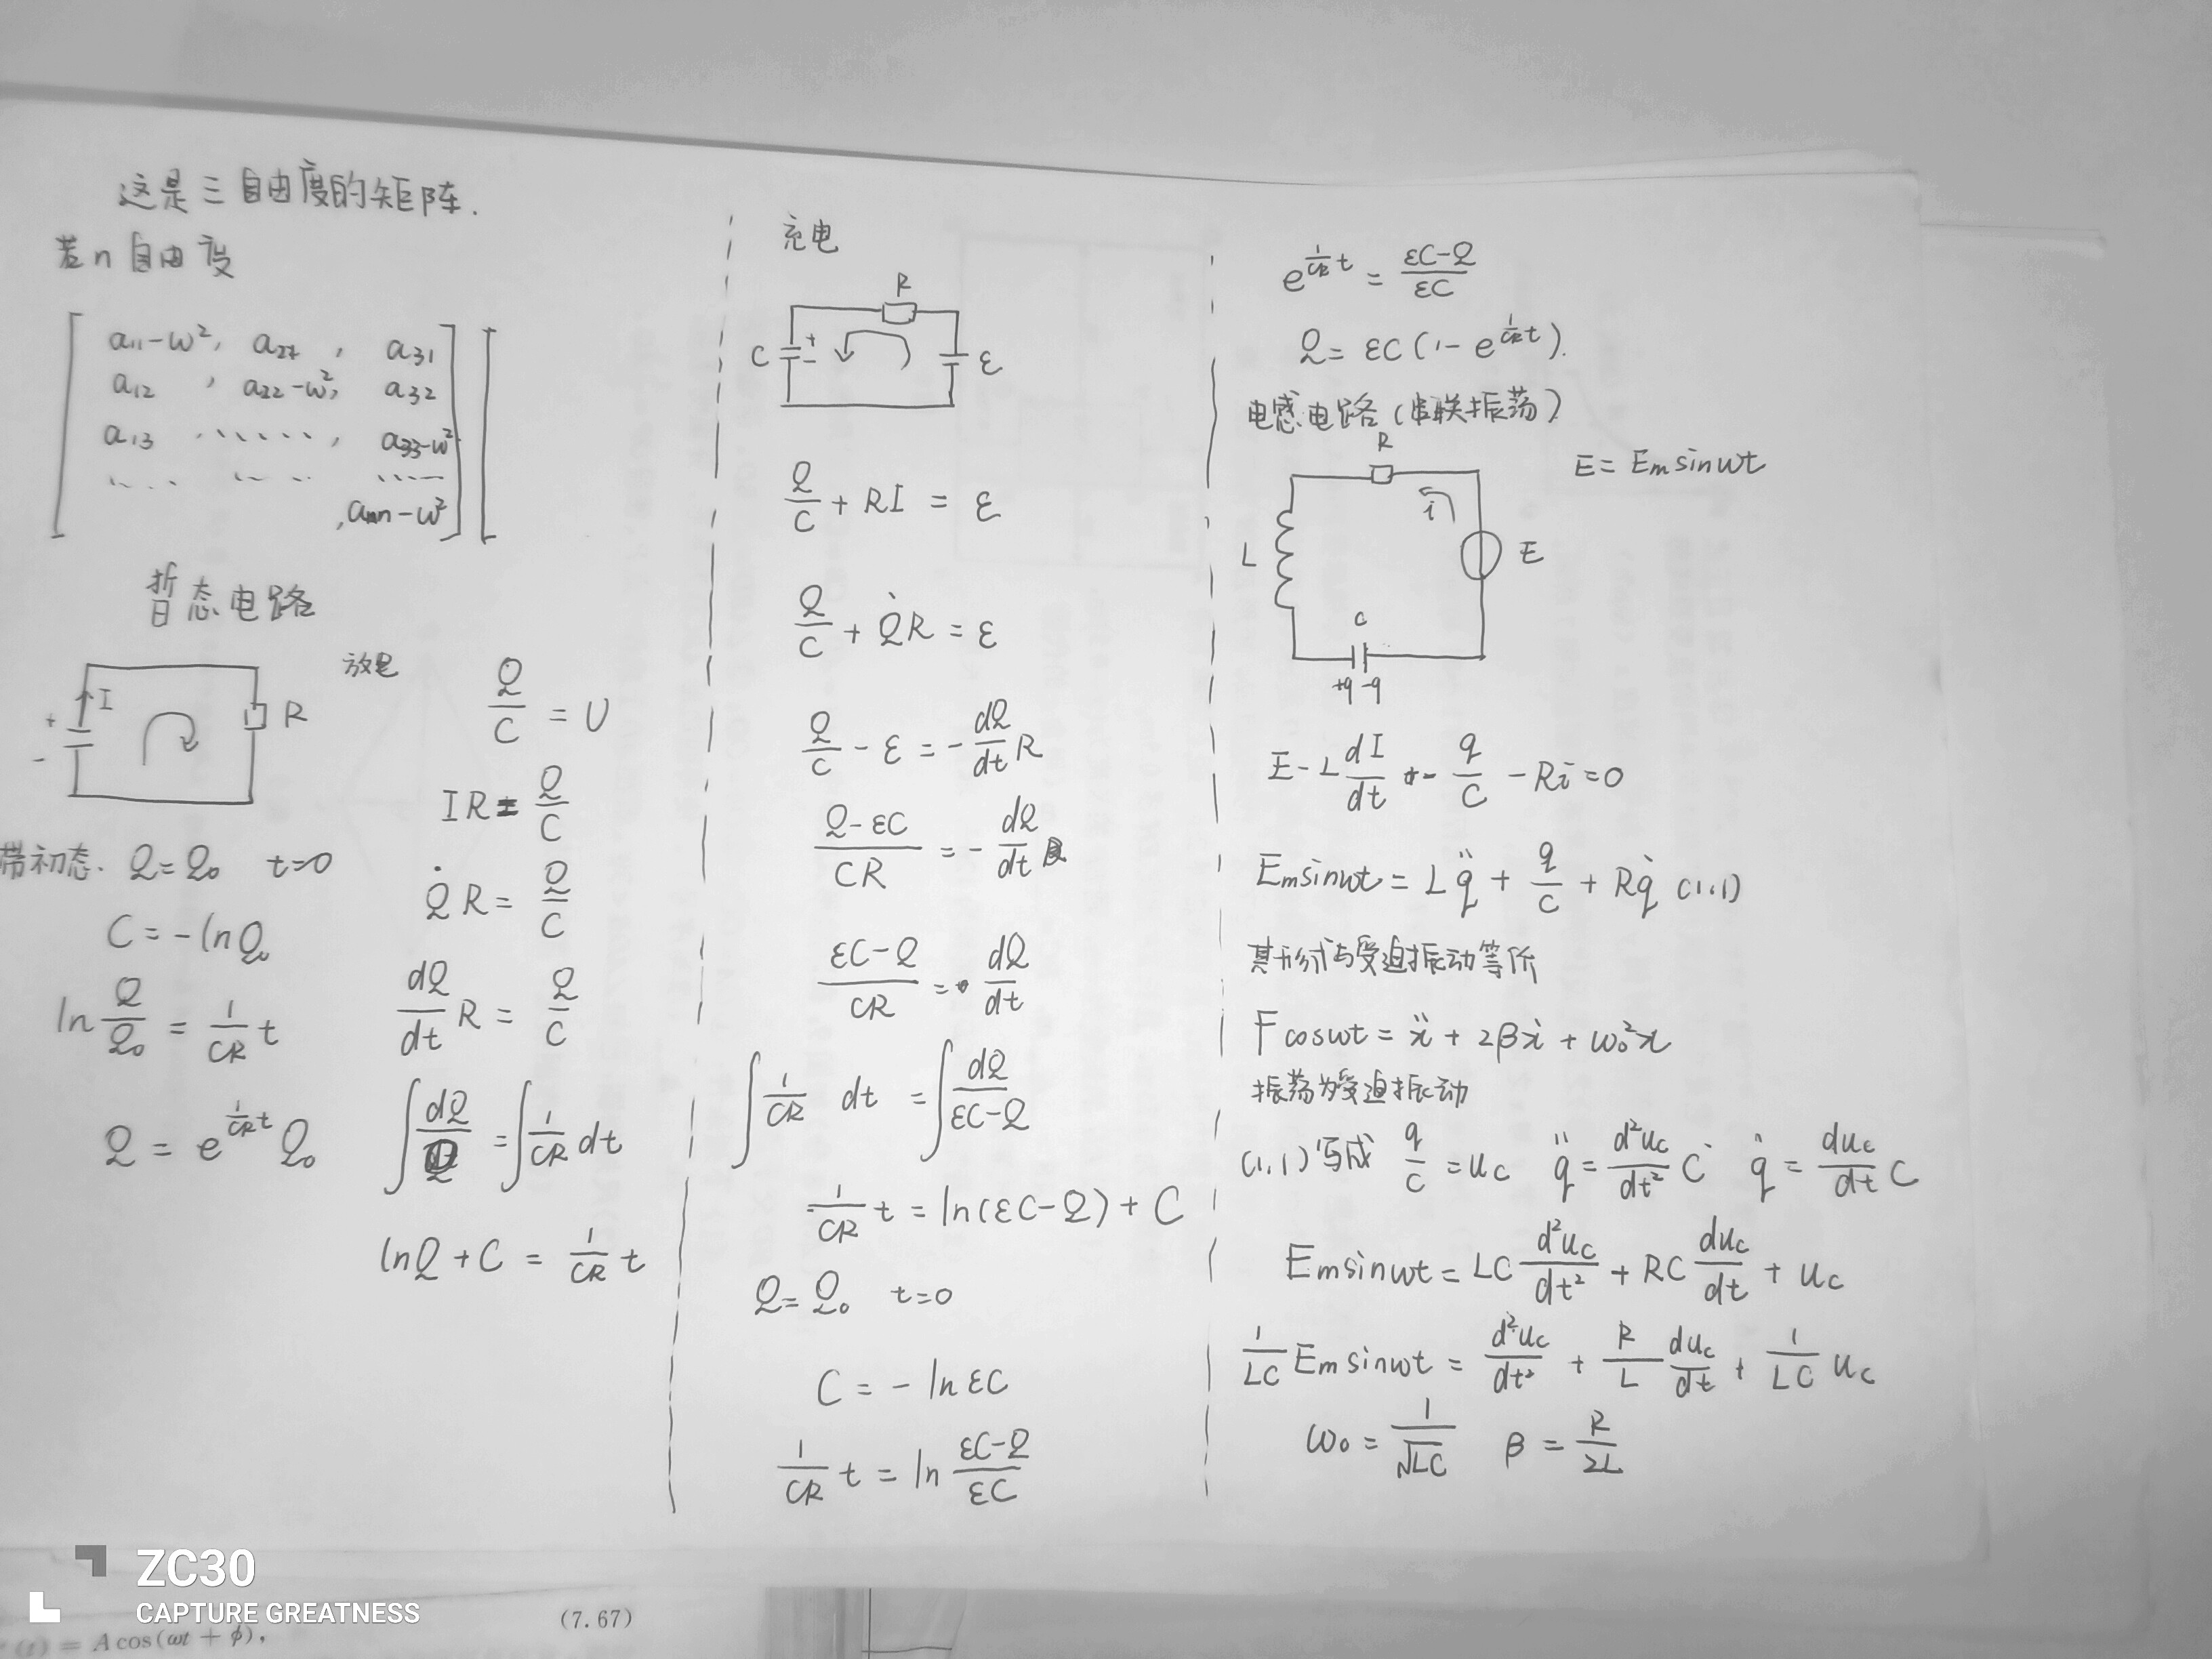 这是三自由度的矩阵.
若n自由度
a11-ω², a21, a31
a12, a22-ω², a32
a13 ......, a33-ω²
.... .... ....
, ann-ω²
暂态电路
放电
I
+
-
R
Q/C = U
IR = Q/C
带初态. Q=Q₀ t=0
Q̇R = Q/C
C = -lnQ₀
dQ/dt R = Q/C
ln Q/Q₀ = 1/CR t
∫ dQ/Q = ∫ 1/CR dt
Q = e^{1/CR t} Q₀
lnQ + C = 1/CR t
充电
R
C
+
-
ε
Q/C + RI = ε
Q/C + Q̇R = ε
Q/C - ε = - dQ/dt R
(Q-εC)/CR = - dQ/dt
(εC-Q)/CR = dQ/dt
∫ 1/CR dt = ∫ dQ/(εC-Q)
1/CR t = ln(εC-Q) + C
Q = Q₀ t=0
C = - ln εC
1/CR t = ln (εC-Q)/εC
e^{1/CR t} = (εC-Q)/εC
Q = εC(1 - e^{1/CR t}).
电感电路(串联振荡)
E = Em sinωt
R
i
L
E
C
+q -q
E - L dI/dt - q/C - Ri = 0
Em sinωt = L q̈ + q/C + R q̇ (1.1)
其形式与受迫振动等价
F cosωt = ẍ + 2βẋ + ω₀²x
振荡为受迫振动
(1.1)写成 q/C = uc q̈ = d²uc/dt² C q̇ = duc/dt C
Em sinωt = LC d²uc/dt² + RC duc/dt + uc
1/LC Em sinωt = d²uc/dt² + R/L duc/dt + 1/LC uc
ω₀ = 1/√LC β = R/2L
ZC30
CAPTURE GREATNESS
(7.67)
(t) = A cos(ωt + φ),